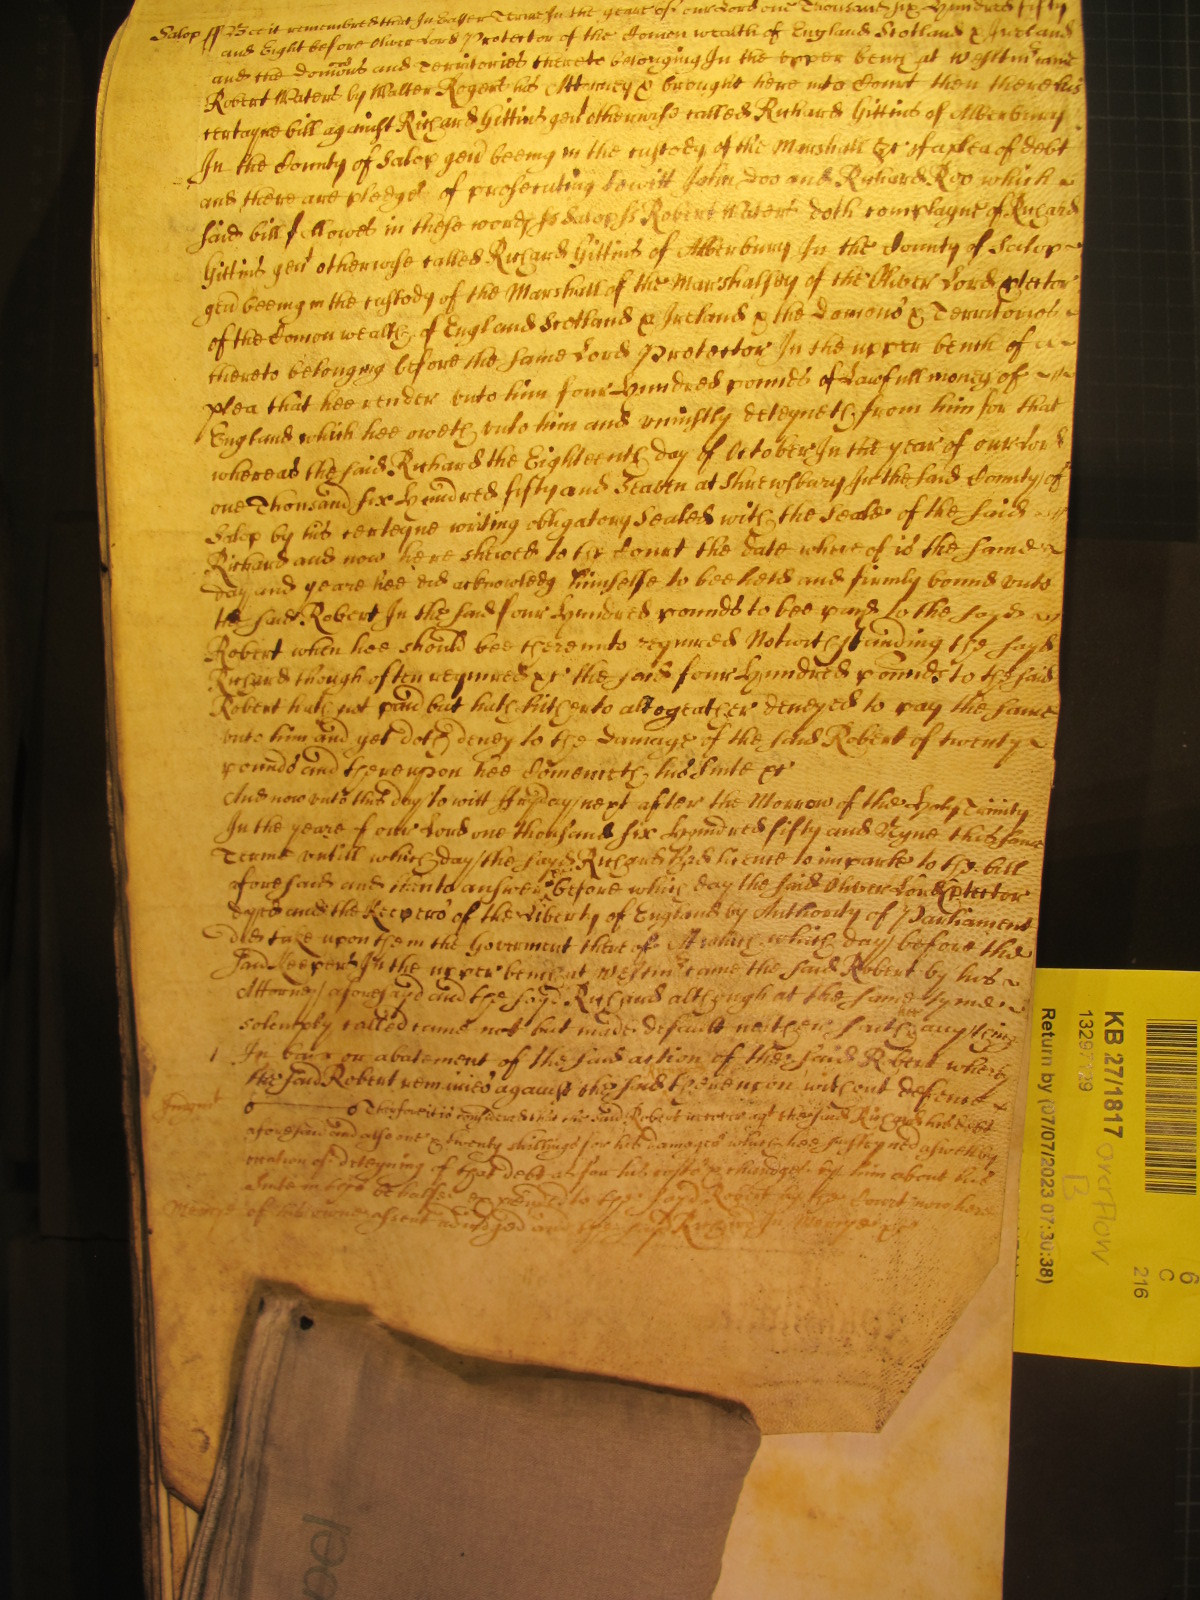 Salop ss Bee it remembred that In Easter Terme In the yeare of our Lord one Thousand six Hundred fifty
and Eight before Oliver Lord Protector of the Comon wealth of England Scotland & Ireland
and the Domions and Territories thereto belonging In the upper bench at Westminster came
Robert Waters by Walter Rogers his Attorney & brought here into Court then there his
certayne bill against Richard Gittins gen otherwise called Richard Gittins of Alberbury
In the County of Salop gen beeing in the custody of the Marshall &c of a plea of debt
and there are pledges of prosecuting to witt John Doo and Richard Roo which
said bill followes in these words ss Salop ss Robert Waters doth complayne of Richard
Gittins gen otherwise called Richard Gittins of Alberbury In the County of Salop
gen beeing in the custody of the Marshall of the Marshalsey of the Oliver Lord ptector
of the Comon wealth of England Scotland & Ireland & the Domions & Territories
thereto belonging before the same Lord Protector In the upper bench of a
plea that hee render unto him four Hundred pounds of Lawfull money of
England which hee oweth unto him and uniustly deteyneth from him for that
whereas the said Richard the Eighteenth day of October In the year of our Lord
one Thousand six Hundred fifty and Seaven at Shrewsbury In the said County of
Salop by his certeyne writing obligatory Sealed with the Seale of the said
Richard and now here shewed to the Court the date whereof is the same
day and yeare hee did acknowledg himselfe to bee held and firmly bound unto
the said Robert In the said four Hundred pounds to bee paid to the sayd
Robert when hee should bee thereunto required Notwithstanding the sayd
Richard though often required &c the said four Hundred pounds to the said
Robert hath not paid but hath hitherto altogeather denyed to pay the same
unto him and yet doth deney to the damage of the said Robert of twenty
pounds and thereupon hee bringeth his suite &c
And now unto this day to witt ffryday next after the Morrow of the Holy Trinity
In the yeare of our Lord one thousand six Hundred fifty and Nyne this same
Terme untill which day the sayd Richard had licence to imparle to the bill
aforesaid and then to answer &c before which day the said Oliver Lord Ptector
dyed and the Keepers of the Liberty of England by Authority of Parliament
did take upon them the Goverment thereof At which day before the
said Keepers In the upper bench at Westmr came the said Robert by his
Attorney aforesayd and the sayd Richard although at the same tyme
solemply called came not but made default neither saith hee any thing
In barr or abatement of the said action of the said Robert whereby
the said Robert remaines against the said thereupon without defence
Judgmt Therefore it is considered that the said Robert recover agt the said Richard his debt
aforesaid and also one & twenty shillings for his damages which hee susteyned aswell by
occation of deteyning of that debt as for his costs & chardges by him about his
suite in this behalfe expended to the sayd Robert by the Court now here
Mercye of his owne assent adiudged and the sayd Richard In Mercye &c
KB 27/1817
13297739
Return by (07/07/2023 07:30:38)
overflow
B
6
C
216